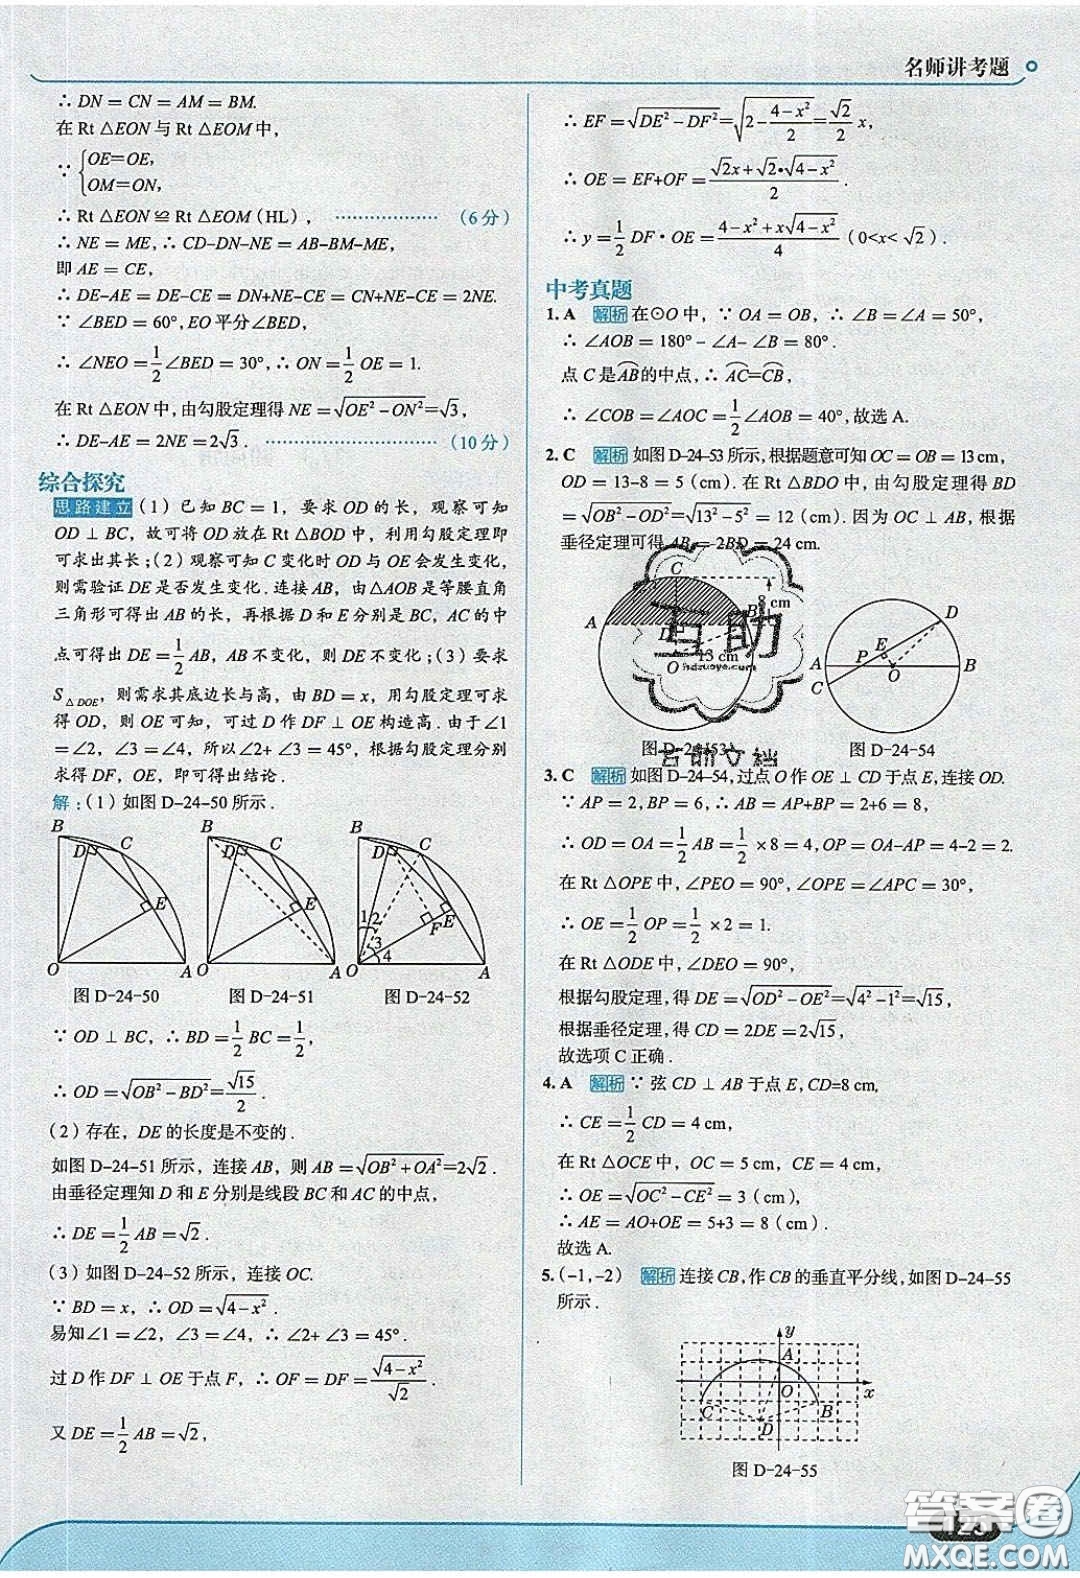 名师讲考题
∴ DN = CN = AM = BM.
在 Rt △EON 与 Rt △EOM 中,
∵ {OE=OE,
OM=ON,
∴ Rt △EON ≌ Rt △EOM (HL), ………………… (6 分)
∴ NE = ME, ∴ CD-DN-NE = AB-BM-ME,
即 AE = CE,
∴ DE-AE = DE-CE = DN+NE-CE = CN+NE-CE = 2NE.
∵ ∠BED = 60°, EO 平分∠BED,
∴ ∠NEO = 1/2 ∠BED = 30°, ∴ ON = 1/2 OE = 1.
在 Rt △EON 中, 由勾股定理得 NE = √(OE² - ON²) = √3,
∴ DE-AE = 2NE = 2√3 . ………………………… (10 分)
综合探究
思路建立 (1) 已知 BC = 1, 要求 OD 的长, 观察可知
OD ⊥ BC, 故可将 OD 放在 Rt △BOD 中, 利用勾股定理即
可求出其长; (2) 观察可知 C 变化时 OD 与 OE 会发生变化,
则需验证 DE 是否发生变化. 连接 AB, 由△AOB 是等腰直角
三角形可得出 AB 的长, 再根据 D 和 E 分别是 BC, AC 的中
点可得出 DE = 1/2 AB, AB 不变化, 则 DE 不变化; (3) 要求
S△DOE, 则需求其底边长与高, 由 BD = x, 用勾股定理可求
得 OD, 则 OE 可知, 可过 D 作 DF ⊥ OE 构造高. 由于∠1
= ∠2, ∠3 = ∠4, 所以∠2+ ∠3 = 45°, 根据勾股定理分别
求得 DF, OE, 即可得出结论.
解: (1) 如图 D-24-50 所示.
B D C E O A
B D C E O A
B D C E F 1 2 3 4 O A
图 D-24-50 图 D-24-51 图 D-24-52
∵ OD ⊥ BC, ∴ BD = 1/2 BC = 1/2,
∴ OD = √(OB² - BD²) = √15/2 .
(2) 存在, DE 的长度是不变的.
如图 D-24-51 所示, 连接 AB, 则 AB = √(OB² + OA²) = 2√2 .
由垂径定理知 D 和 E 分别是线段 BC 和 AC 的中点,
∴ DE = 1/2 AB = √2 .
(3) 如图 D-24-52 所示, 连接 OC.
∵ BD = x, ∴ OD = √(4-x²) .
易知∠1 = ∠2, ∠3 = ∠4, ∴ ∠2+ ∠3 = 45°.
过 D 作 DF ⊥ OE 于点 F, ∴ OF = DF = √(4-x²)/√2 .
又 DE = 1/2 AB = √2,
∴ EF = √(DE² - DF²) = √(2 - (4-x²)/2) = √2/2 x,
∴ OE = EF+OF = (√2x+√2·√(4-x²))/2 .
∴ y = 1/2 DF · OE = (4-x²+x√(4-x²))/4 (0<x< √2) .
中考真题
1. A 解析 在⊙O 中, ∵ OA = OB, ∴ ∠B = ∠A = 50°,
∴ ∠AOB = 180° - ∠A- ∠B = 80° .
点 C 是⌒AB的中点, ∴ ⌒AC=⌒CB,
∴ ∠COB = ∠AOC = 1/2 ∠AOB = 40°, 故选 A.
2. C 解析 如图 D-24-53 所示, 根据题意可知 OC = OB = 13 cm,
OD = 13-8 = 5 (cm). 在 Rt △BDO 中, 由勾股定理得 BD
= √(OB² - OD²) = √(13² - 5²) = 12 (cm). 因为 OC ⊥ AB, 根据
垂径定理可得 AB = 2BD = 24 cm.
C 8 cm A D B O 13 cm
D E P A B C O
互助
hdzuoye.com
图 D-24-53 图 D-24-54
3. C 解析 如图 D-24-54, 过点 O 作 OE ⊥ CD 于点 E, 连接 OD.
∵ AP = 2, BP = 6, ∴ AB = AP+BP = 2+6 = 8,
∴ OD = OA = 1/2 AB = 1/2 ×8 = 4, OP = OA-AP = 4-2 = 2.
在 Rt △OPE 中, ∠PEO = 90°, ∠OPE = ∠APC = 30°,
∴ OE = 1/2 OP = 1/2 ×2 = 1.
在 Rt △ODE 中, ∠DEO = 90°,
根据勾股定理, 得 DE = √(OD² - OE²) = √(4² - 1²) = √15,
根据垂径定理, 得 CD = 2DE = 2√15,
故选项 C 正确.
4. A 解析 ∵ 弦 CD ⊥ AB 于点 E, CD=8 cm,
∴ CE = 1/2 CD = 4 cm,
在 Rt △OCE 中, OC = 5 cm, CE = 4 cm,
∴ OE = √(OC² - CE²) = 3 (cm),
∴ AE = AO+OE = 5+3 = 8 (cm).
故选 A.
5. (-1, -2) 解析 连接 CB, 作 CB 的垂直平分线, 如图 D-24-55
所示.
y A O x C B D
图 D-24-55
答案圈
MXQE.COM